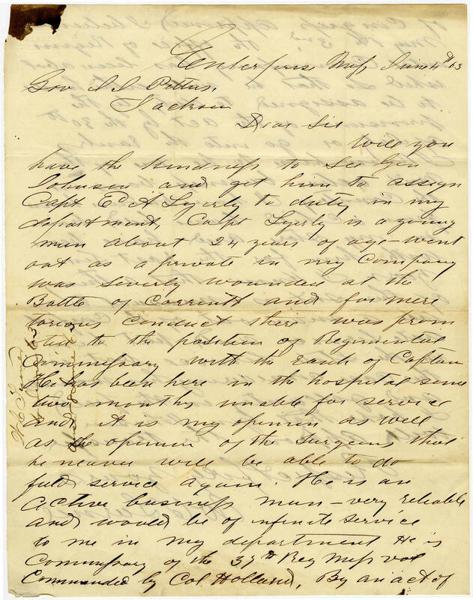 Enterprise Miss June 4th 63
Gov J J Pettus,
Jackson
Dear Sir
Will you
have the kindness to see Gen
Johnson and get him to assign
Capt Ed A Lyerly to duty in my
department, Capt Lyerly is a young
man about 24 years of age - went
out as a private in my company
was severly wounded at the
Battle of Corrinth and for mere
torious conduct there was promo
ted to the position of Regimental
Commissary with the rank of Captain
He has been here in the hospital some
two months unable for service
and it is my opinion as well
as the opinion of the Surgeons that
he neaver will be able to do
full service again. He is an
active business man - very reliable
and would be of infinite service
to me in my department He is
Commissary of the 37th Reg Miss vol
Commanded by Col Holland, By an act of